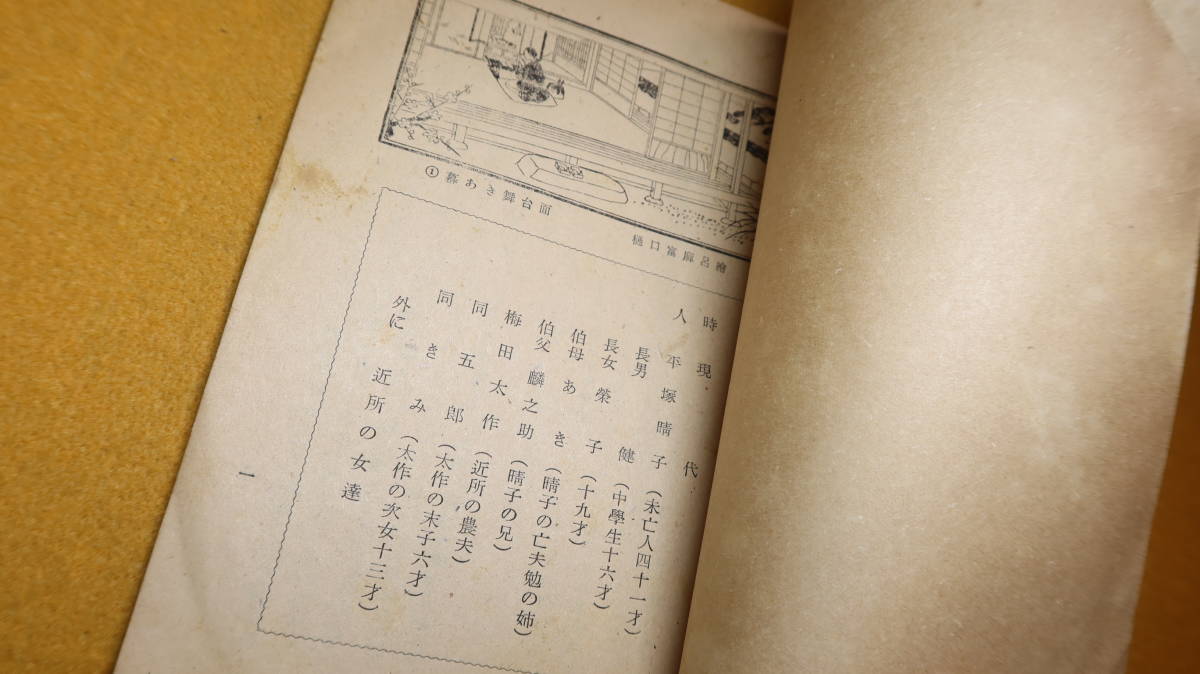 ①幕あき舞台面
樋口富麻呂繪
時 現代
人 平塚晴子(未亡人四十一才)
長男 健(中學生十六才)
長女 榮子(十九才)
伯母 あき(晴子の亡夫勉の姉)
伯父 麟之助(晴子の兄)
梅田太作(近所の農夫)
同 五郎(太作の末子六才)
同 きみ(太作の次女十三才)
外に 近所の女達
一